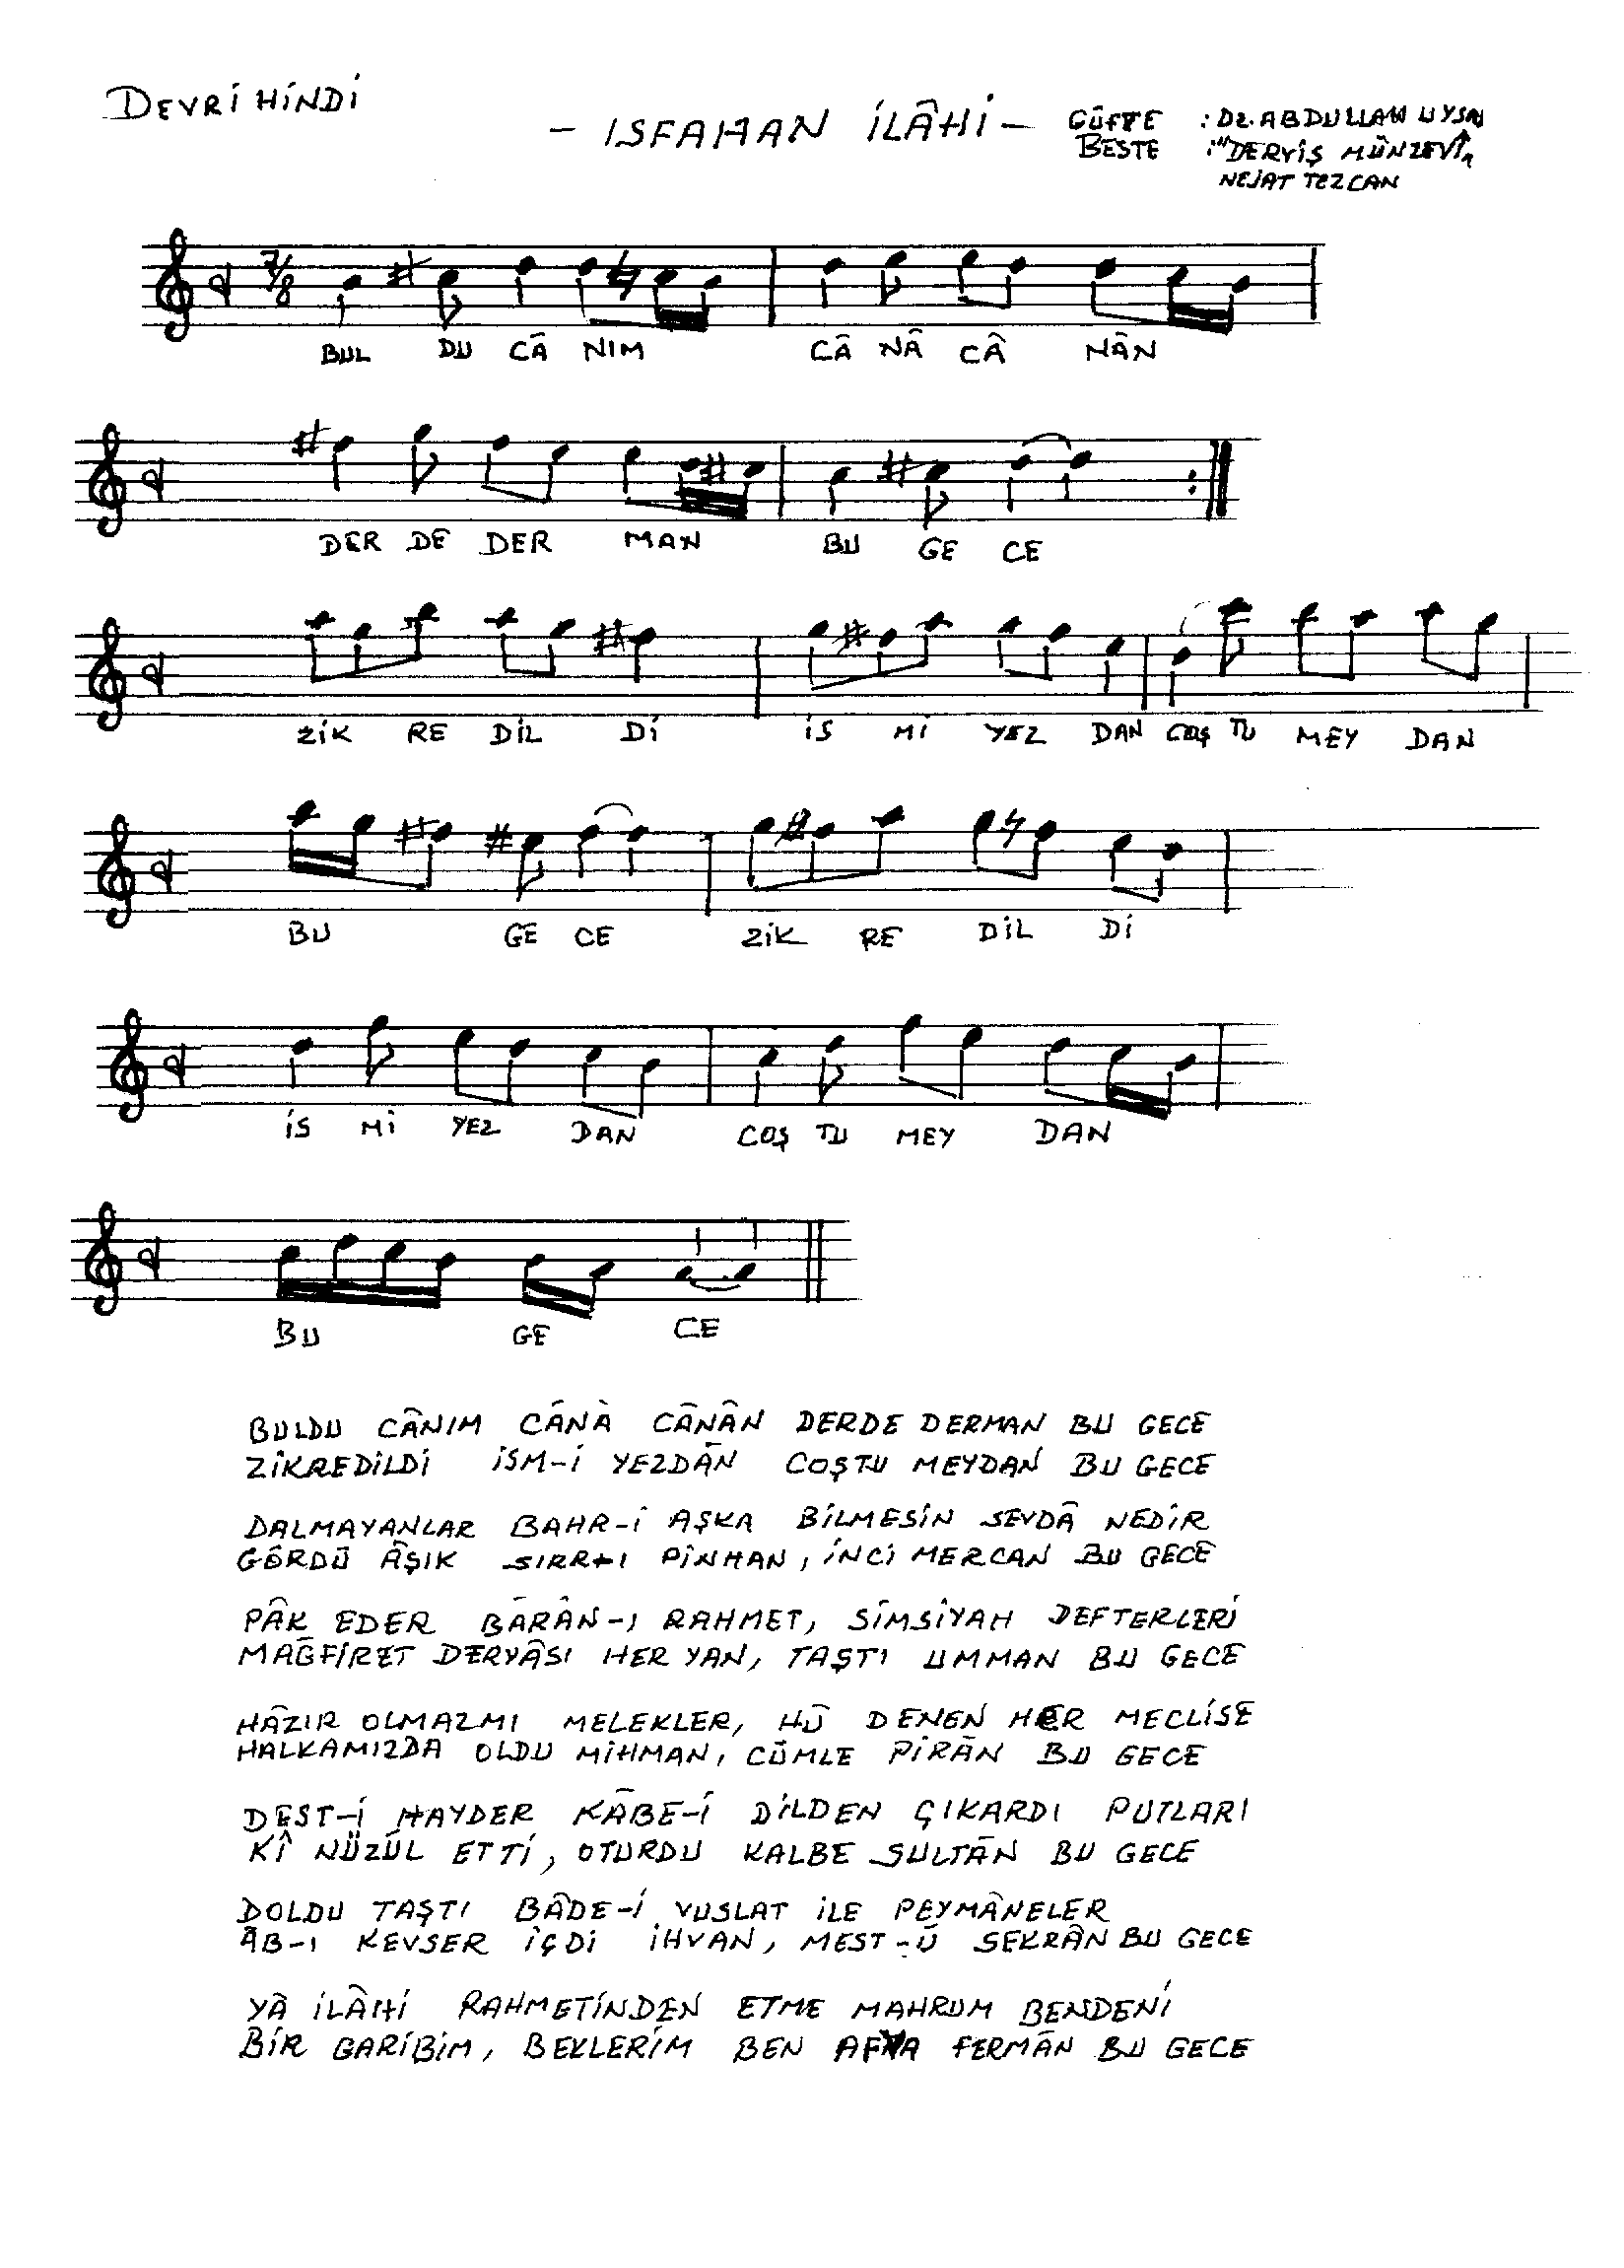 DEVRİ HİNDİ
- ISFAHAN İLÂHİ -
GÜFTE : Dr. ABDULLAH UYSAL
BESTE : "DERVİŞ MÜNZEVİ"
NEJAT TEZCAN
7/8
BUL DU CÂ NIM CÂ NÂ CÂ NÂN
DER DE DER MAN BU GE CE
ZİK RE DİL Dİ İS Mİ YEZ DAN COŞ TU MEY DAN
BU GE CE ZİK RE DİL Dİ
İS Mİ YEZ DAN COŞ TU MEY DAN
BU GE CE
BULDU CÂNIM CÂNÀ CÂNÂN DERDE DERMAN BU GECE
ZİKREDİLDİ İSM-İ YEZDÂN COŞTU MEYDAN BU GECE
DALMAYANLAR BAHR-İ AŞKA BİLMESİN SEVDÂ NEDİR
GÖRDÜ ÂŞIK SIRR-I PİNHAN, İNCİ MERCAN BU GECE
PÂK EDER BÂRÂN-I RAHMET, SİMSİYAH DEFTERLERİ
MAĞFİRET DERYÂSI HER YAN, TAŞTI UMMAN BU GECE
HÂZIR OLMAZMI MELEKLER, HÛ DENEN HER MECLİSE
HALKAMIZDA OLDU MİHMAN, CÜMLE PİRÂN BU GECE
DEST-İ HAYDER KÂBE-İ DİLDEN ÇIKARDI PUTLARI
Kİ NÜZÛL ETTİ, OTURDU KALBE SULTÂN BU GECE
DOLDU TAŞTI BÂDE-İ VUSLAT İLE PEYMÂNELER
ÂB-I KEVSER İÇDİ İHVAN, MEST-Ü SEKRÂN BU GECE
YÂ İLÂHİ RAHMETİNDEN ETME MAHRUM BENDENİ
BİR GARİBİM, BEKLERİM BEN AFVA FERMÂN BU GECE